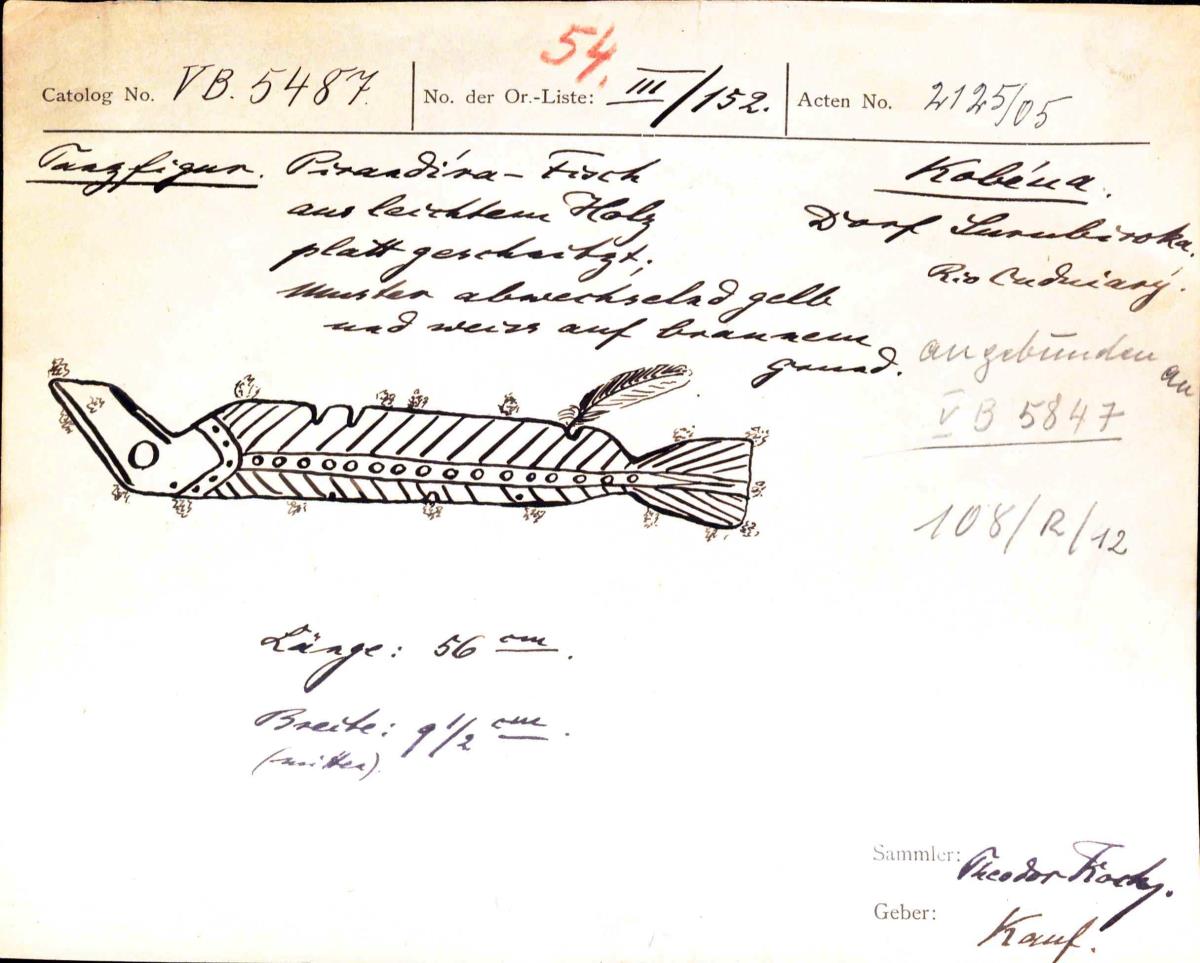 54.
Catolog No. VB. 5487. No. der Or.-Liste: III/152. Acten No. 2125/05
Tanzfigur. Pirandíra-Fisch
aus leichtem Holz
platt geschnitzt;
Muster abwechselnd gelb
und weiss auf braunem
Grund.
Kobéua.
Dorf Surubiroka.
Rio Cuduiarý.
angebunden an
VB 5847
108/R/12
Länge: 56 cm.
Breite: 9 1/2 cm.
(mitten).
Sammler: Theodor Koch.
Geber: Kauf.